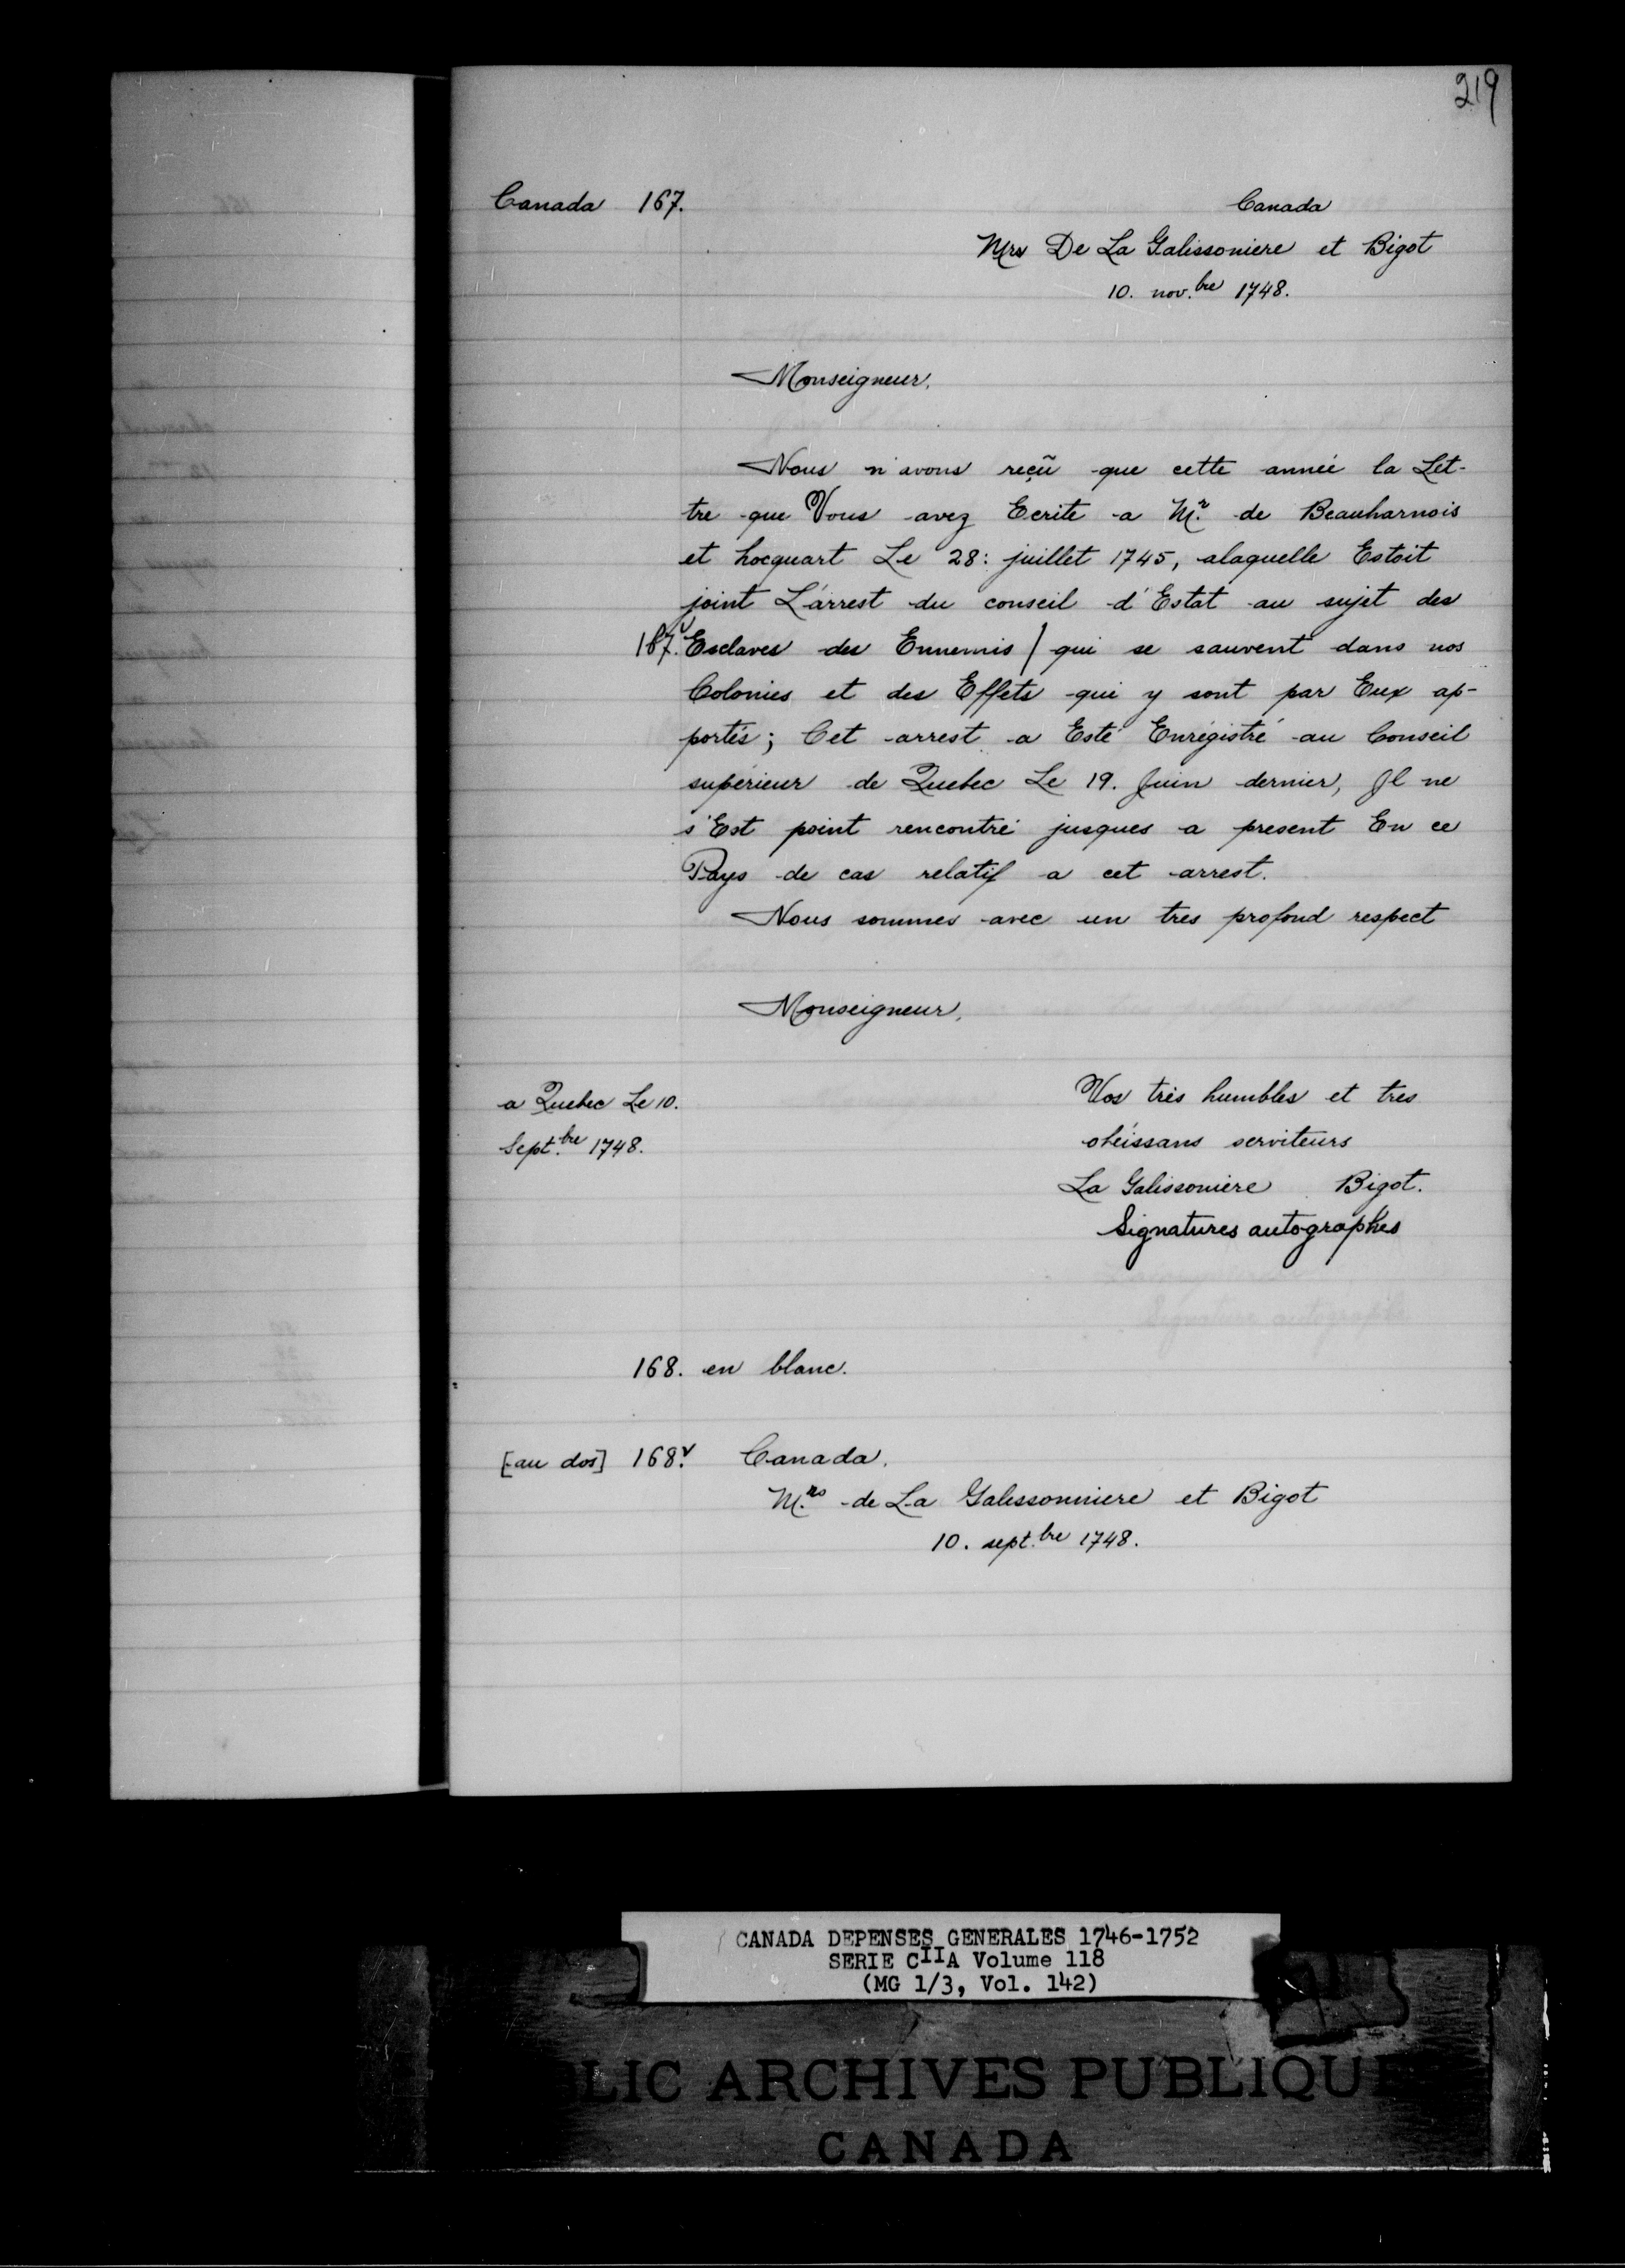 219
Canada 167. Canada
Mrs De La Galissoniere et Bigot
10. nov.bre 1748.
Monseigneur,
Nous n'avons reçũ que cette année la Let-
tre que Vous avez Ecrite a M.r de Beauharnois
et hocquart Le 28: juillet 1745, alaquelle Estoit
joint L'arrest du conseil d'Estat au sujet des
167.v Esclaves des Ennemis / qui se sauvent dans nos
Colonies et des Effets qui y sont par Eux ap-
portés; Cet arrest a Esté Enrégistré au Conseil
supérieur de Quebec Le 19. Juin dernier, Il ne
s'Est point rencontré jusques a present En ce
Pays de cas relatif a cet arrest.
Nous sommes avec un tres profond respect
Monseigneur,
a Quebec Le 10.
Sept.bre 1748.
Vos très humbles et tres
obéissans serviteurs
La Galissoniere Bigot.
Signatures autographes
168. en blanc.
[au dos] 168.v Canada.
M.rs de La Galissonniere et Bigot
10. sept.bre 1748.
CANADA DEPENSES GENERALES 1746-1752
SERIE CIIA Volume 118
(MG 1/3, Vol. 142)
LIC ARCHIVES PUBLIQUE
CANADA